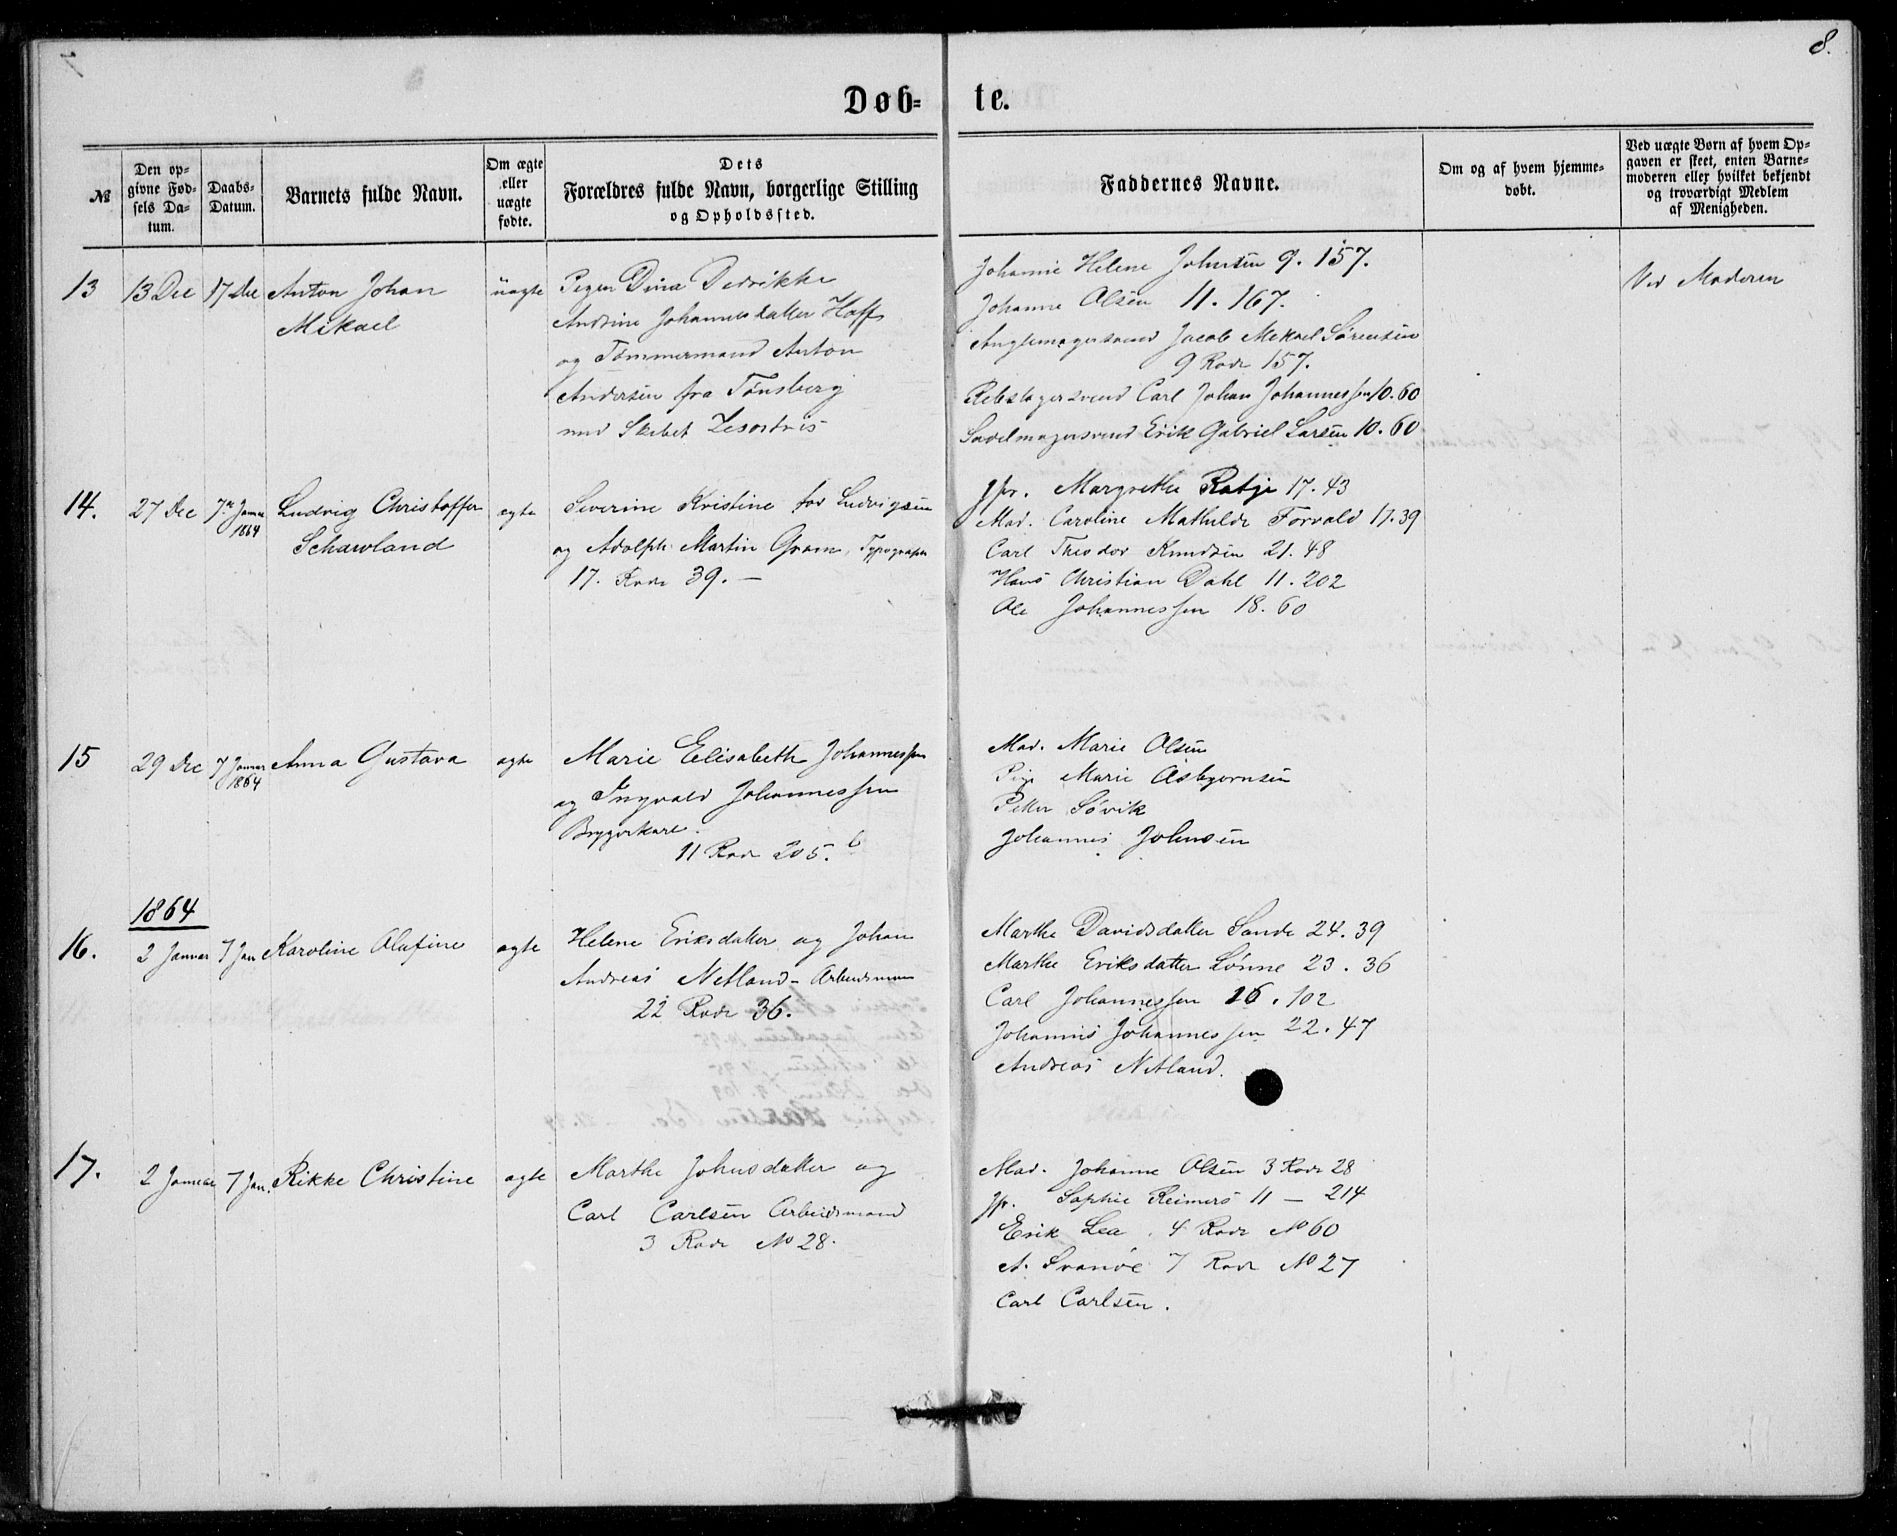 8.
Døb= te.
№
Den op=
givne Fød=
sels Da=
tum.
Daabs=
Datum.
Barnets fulde Navn.
Om ægte
eller
uægte
fødte.
Dets
Forældres fulde Navn, borgerlige Stilling
og Opholdssted.
Faddernes Navne.
Om og af hvem hjemme=
døbt.
Ved uægte Børn af hvem Op=
gaven er skeet, enten Barne=
moderen eller hvilket bekjendt
og troværdigt Medlem
af Menigheden.
13
13 Dec
17 Dec
Anton Johan
Mikael
uægte
Pigen Dina Didrikke
Andrine Johannesdatter Hoff
og Tømmermand Anton
Andersen fra Tønsberg
med Skibet
Johanne Helene Johnsen 9. 157.
Johanne Olsen 11. 167.
Jacob Mekael Sørensen
9 Rode 157.
Rebslagersvend Carl Johan Johannessen 10. 60
Sadelmagersvend Erik Gabriel Larsen 10. 60
Ved Moderen
14.
27 Dec
7de Januar
1864
Ludvig Christoffer
Schawland
egte
Severine Kristine før Ludvigsen
og Adolph Martin Gram, Typograph
17. Rode 39. —
Jfr. Margrethe Ratje 17. 43
Mad. Caroline Mathilde Forvald 17. 39
Carl Theodor Knudsen 21. 48
Hans Christian Dahl 11. 202
Ole Johannessen 18. 60
15
29 Dec
7 Januar
1864
Anna Gustava
ægte
Marie Elisabeth Johannessen
og Ingvald Johannessen
Bryggerkarl.
11 Rode 205. b
Mad. Marie Olsen
Pige Marie Asbjørnsen
Peter Søvik
Johannes Johnsen
1864
16.
2 Januar
7 Jan
Karoline Olufine
ægte
Helene Eriksdatter og Johan
Andreas Netland – Arbeidsmann
22 Rode 36.
Marthe Davidsdatter Sande 24. 39
Marthe Eriksdatter Lønne 23. 36
Carl Johannessen 16. 102
Johannes Johannessen 22. 47
Andreas Netland.
17.
2 Januar
7 Jan.
Rikke Christine
ægte
Marthe Johnsdatter og
Carl Carlsen Arbeidsmand
3 Rode No 28.
Mad. Johanne Olsen 3 Rode 28
Jfr. Sophie Reimers 11 — 214
Erik Lea. 4 Rode No 60
A. Svanøe 7 Rode No 27
Carl Carlsen.